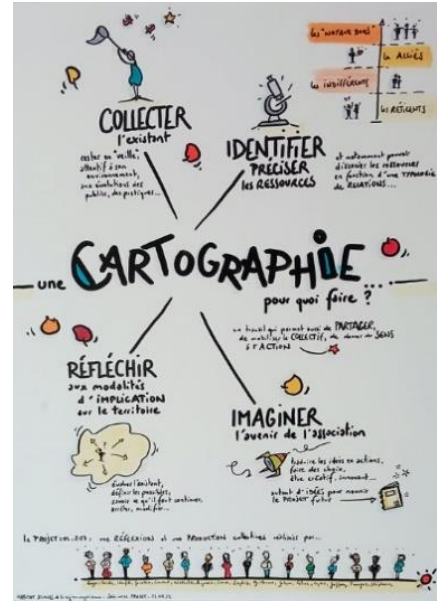 les "NOYAUX DURS"
les ALLIÉS
les INDIFFÉRENTS
les RÉTICENTS
COLLECTER
l'existant
rester en "veille",
attentif à son
environnement,
aux évolutions des
publics, des pratiques...
IDENTIFIER
PRÉCISER
les RESSOURCES
et notamment pouvoir
dissocier les ressources
en fonction d'une TYPOLOGIE
de RELATIONS...
une CARTOGRAPHIE...
pour quoi faire ?
un travail qui permet aussi de PARTAGER,
de mobiliser le COLLECTIF, de donner du SENS
à l'ACTION
RÉFLÉCHIR
aux modalités
d'IMPLICATION
sur le territoire
évaluer l'existant,
définir les possibles,
savoir ce qu'il faut continuer,
arrêter, modifier...
IMAGINER
l'avenir de l'association
traduire les idées en actions,
faire des choix,
être créatif, innovant...
autant d'IDÉES pour nourrir
le PROJET futur
une RÉFLEXION et une PRODUCTION collectives réalisées par...